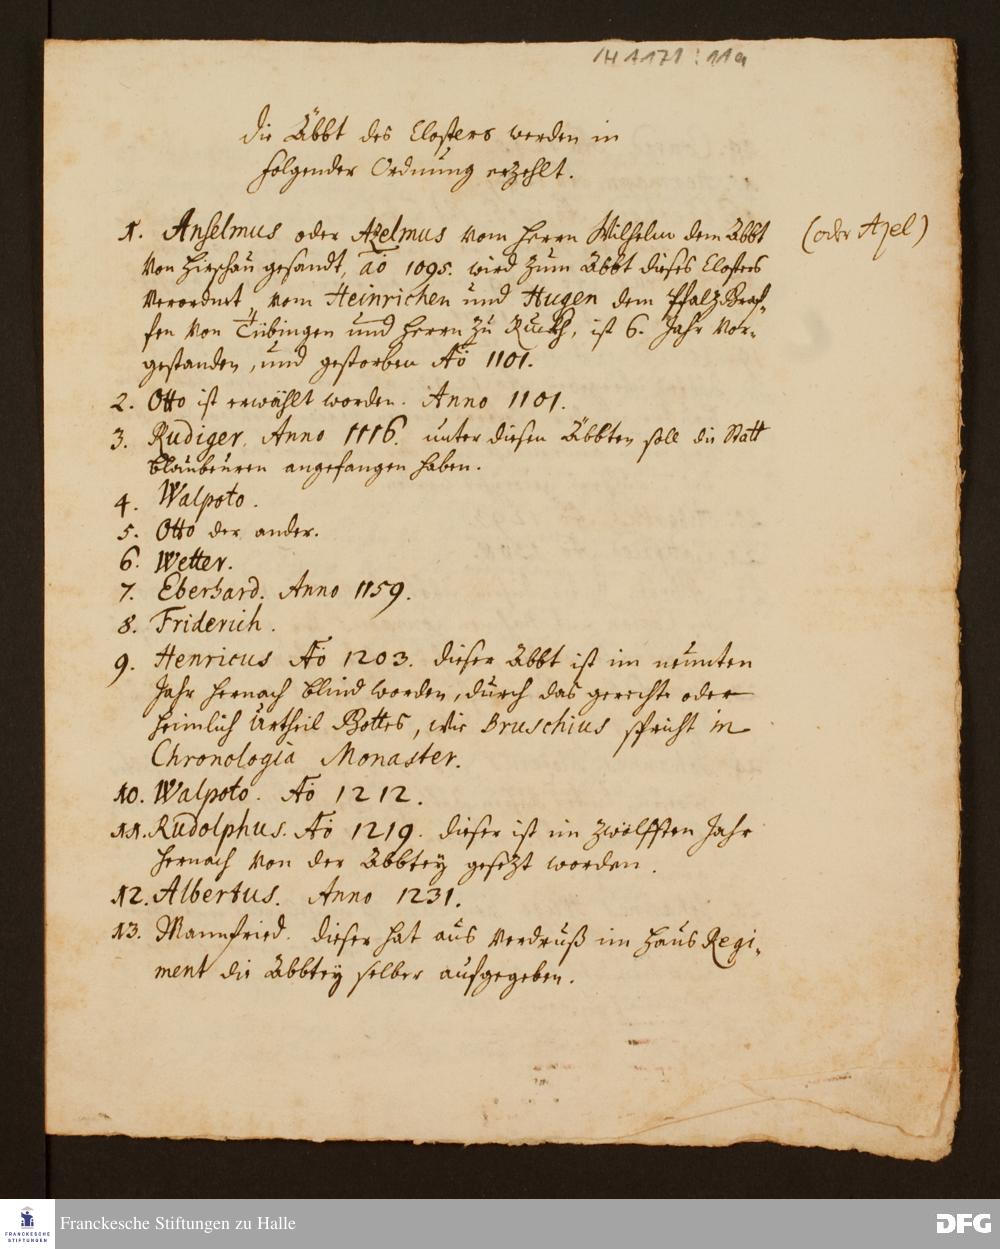 H A 171 : 11a
Die Äbbt des Closters werden in
folgender Ordnung erzehlt.
1. Anselmus oder Azelmus vom Herrn Wilhelm dem Äbbt (oder Azel)
von Hirschau gesandt, aō 1095. wird zum Äbbt dieses Closters
verordnet, vom Heinrichen und Hugen dem Pfalz Graf-
fen von Tübingen und Herrn zu Ruckh, ist 6. Jahr vor-
gestanden, und gestorben Aō 1101.
2. Otto ist erwählt worden. Anno 1101.
3. Rudiger, Anno 1116. unter diesen Äbbten soll die Statt
Blaubeuren angefangen haben.
4. Walpoto.
5. Otto der ander.
6. Wetter.
7. Eberhard. Anno 1159.
8. Friderich.
9. Henricus Aō 1203. dieser Äbbt ist im neunten
Jahr hernach blind worden, durch das gerecht oder
heimlich Urtheil Gottes, wie Bruschius spricht in
Chronologia Monaster.
10. Walpoto. Aō 1212.
11. Rudolphus. Aō 1219. dieser ist im zwölfften Jahr
hernach von der Äbbtey gesezt worden.
12. Albertus. Anno 1231.
13. Mannfried. dieser hat aus Verdruß im Haus Regi-
ment die Äbbtey selber aufgegeben.
FRANCKESCHE
STIFTUNGEN
Franckesche Stiftungen zu Halle
DFG